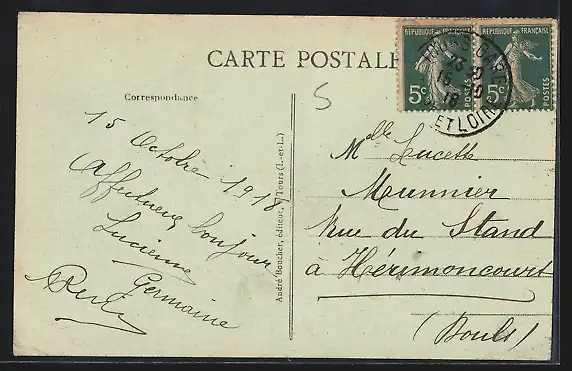 CARTE POSTALE
RÉPUBLIQUE FRANÇAISE
5c
POSTES
RÉPUBLIQUE FRANÇAISE
5c
POSTES
TOURS-GARE
ET LOIRE
Correspondance
5
15 Octobre 1918
Affectueux bonjour
Lucienne
Germaine
André Boucher, éditeur, Tours (I.-et-L.)
Mlle Lucette
Meunnier
Rue du Stand
à Hérimoncourt
(Doubs)